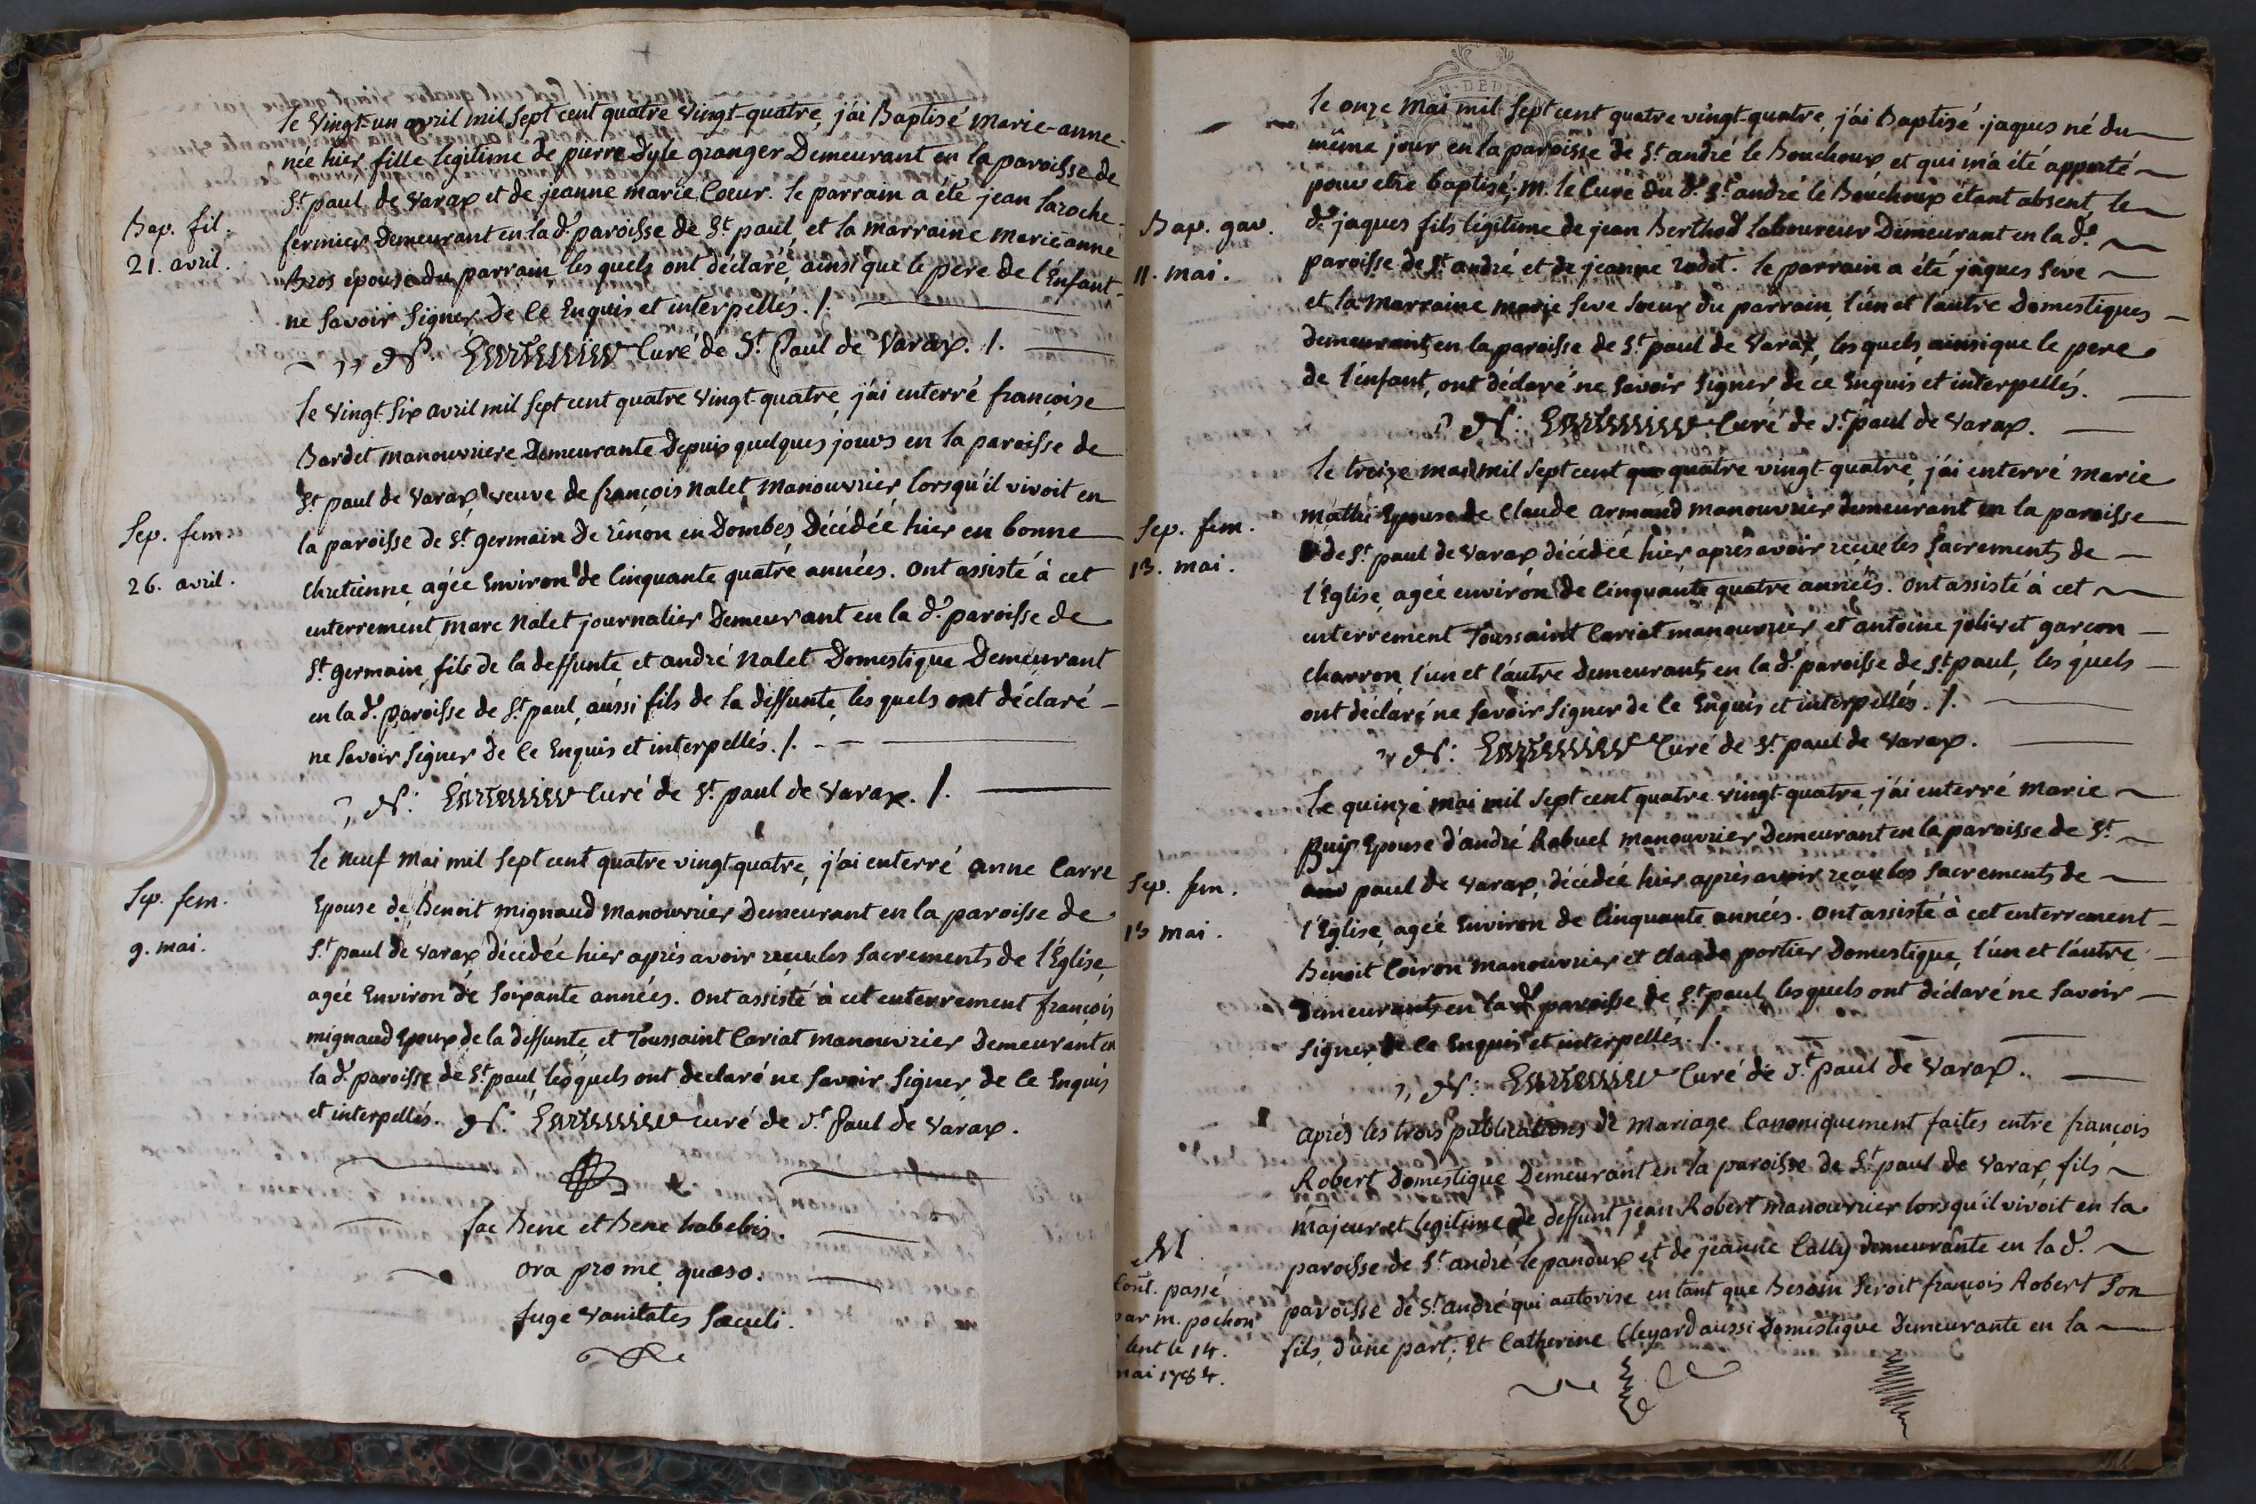 le vingt-un avril mil sept cent quatre vingt-quatre, j'ai Baptisé marie-anne
née hier fille legitime de pierre Dyle granger Demeurant en la paroisse de
St. paul de varax et de jeanne marie Coeur. le parrain a été jean laroche
fermier demeurant en la de. paroisse de St. paul, et la marraine marie anne
Bros épouse du parrain, les quels ont déclaré ainsi que le pere de l'Enfant
ne savoir signer De Ce Enquis et interpellés. /.
Curé de St. Paul de varax. /.
Bap. fil.
21. avril.
le vingt-six avril mil sept cent quatre vingt-quatre, j'ai enterré françoise
Bardet manouvriere Demeurante Depuis quelques jours en la paroisse de
St. paul de varax, veuve de françois Nalet manouvrier lorsqu'il vivoit en
la paroisse de St. germain De rénon en Dombes Décédée hier en bonne
chretienne, agée Environ de Cinquante quatre années. ont assisté à cet
enterrement Marc Nalet journalier Demeurant en la de. paroisse de
St. germain, fils de la deffunte et andré Nalet Domestique Demeurant
en la de. paroisse de St. paul, aussi fils de la deffunte, les quels ont déclaré
ne savoir signer de Ce Enquis et interpellés. /.
Curé de St. paul de varax. /.
Sep. fem.
26. avril.
le neuf mai mil sept cent quatre vingt quatre, j'ai enterré anne Carre
Epouse de Benoit mignaud manouvrier Demeurant en la paroisse de
St. paul de varax, décédée hier après avoir reçu les Sacrements de l'Eglise,
agée Environ de Soixante années. ont assisté à cet enterrement françois
mignaud Epoux de la deffunte et Toussaint Cariat manouvrier Demeurant en
la de. paroisse de St. paul, lesquels ont declaré ne savoir signer, de Ce Enquis
et interpellés. curé de St. Paul de varax.
Sep. fem.
9. mai.
fac Bene et Bene habebis.
ora pro me quæso.
fuge vanitates sæculi.
le onze Mai mil sept cent quatre vingt-quatre, j'ai Baptisé jaques né du
même jour en la paroisse de St. andré le Bouchoux et qui m'a été apporté
pour etre baptisé, M. le Curé du d. St. andré le Bouchoux étant absent, le
d. jaques fils légitime de jean Berthod laboureur Demeurant en la de.
paroisse de St. andré et de jeanne rodet. le parrain a été jaques seve
et la Marraine marie seve soeur du parrain, l'un et l'autre Domestiques
demeurants en la paroisse de St. paul de varax, les quels ainsi que le pere
de l'enfant, ont déclaré ne savoir signer, de ce Enquis et interpellés.
Curé de St. paul de varax.
Bap. gar.
11. mai.
le treize mai mil sept cent quatre vingt-quatre, j'ai enterré marie
mathi Epouse de Claude armand manouvrier demeurant en la paroisse
de St. paul de varax décédée hier après avoir reçu les Sacrements de
l'Eglise, agée environ de Cinquante quatre années. ont assisté à cet
enterrement Toussaint Cariat manouvrier, et antoine jolivet garcon
charron, l'un et l'autre Demeurants en la de. paroisse de St. paul, les quels
ont déclaré ne savoir signer de Ce Enquis et interpellés. /.
Curé de St. paul de varax.
Sep. fem.
13. mai.
le quinze mai mil sept cent quatre vingt-quatre, j'ai enterré Marie
puis Epouse d'andré Rabuel manouvrier Demeurant en la paroisse de St.
paul de varax, décédée hier après avoir reçu les Sacrements de
l'Eglise, agée Environ de Cinquante années. ont assisté à cet enterrement
Benoit Coiron manouvrier et claude portier Domestique, l'un et l'autre
Demeurants en la de. paroisse de St. paul, lesquels ont déclaré ne savoir
signer de Ce Enquis et interpellés. /.
Curé de St. paul de varax.
Sep. fem.
15 mai.
après les trois publications de Mariage Canoniquement faites entre françois
Robert Domestique Demeurant en la paroisse de St. paul de varax, fils
majeur et legitime de deffunt jean Robert manouvrier lorsqu'il vivoit en la
paroisse de St. andré le panoux et de jeanne Cally demeurante en la de.
paroisse de St. andré qui autorise en tant que Besoin Seroit françois Robert son
fils, d'une part; Et Catherine Cleyard aussi Domestique Demeurante en la
M.
Cont. passé
par m. pochon
lent le 14.
mai 1784.